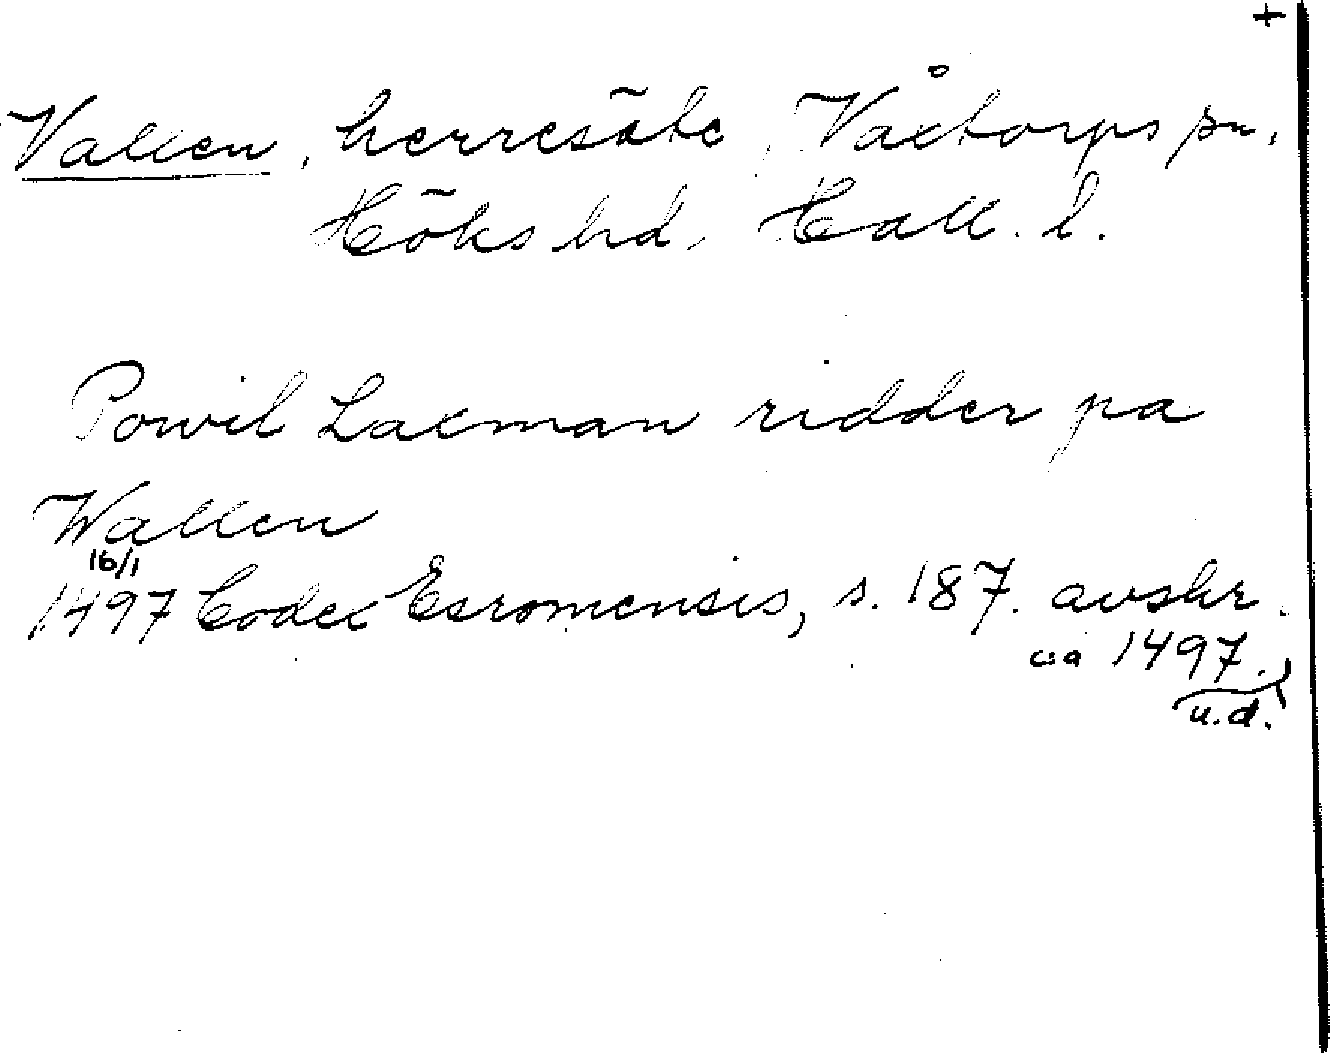 +
Vallen, herresäte, Våxtorps sn,
Höks hd, Hall. l.
Powil Laxman ridder pa
Wallen
16/1
1497 Codex Esromensis, s. 187. avskr.
ca 1497.
u.d.